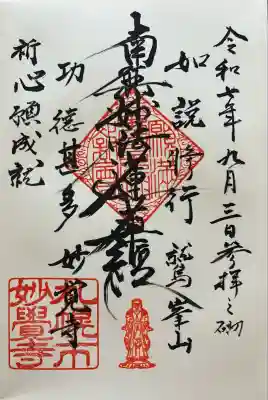 令和七年九月三日参拝之砌
如説修行 鷲峯山
南無妙法蓮華経
功徳甚多 妙覚寺
祈心願成就
妙覺寺